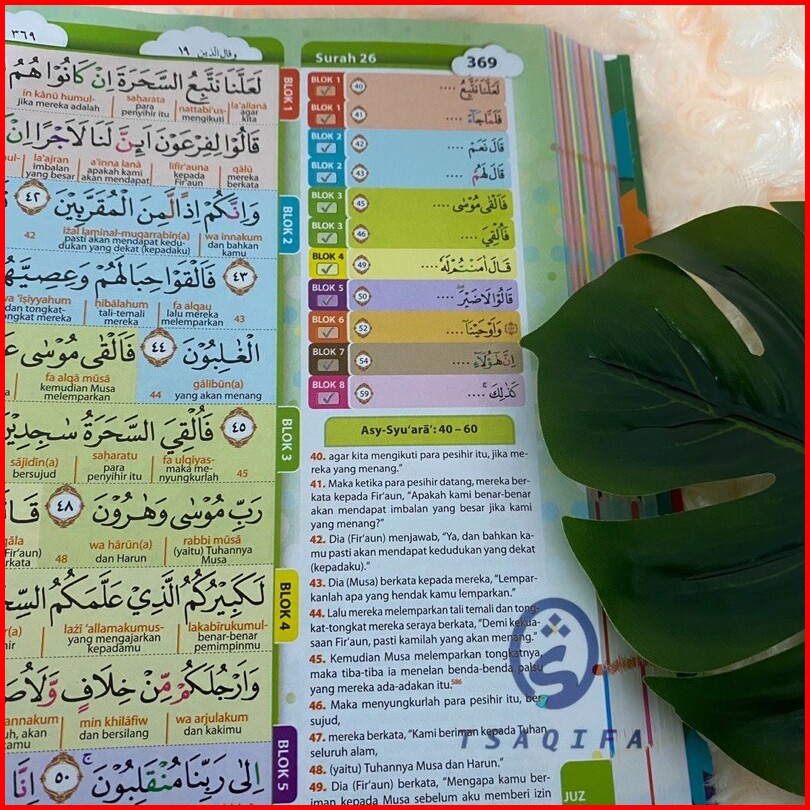 ٣٦٩
وقال الذين ١٩
لَعَلَّنَا نَتَّبِعُ السَّحَرَةَ اِنْ كَانُوْا هُمُ
la'allanā nattabi'us- saḥarata in kānū humul-
agar kita mengikuti para penyihir itu jika mereka adalah
BLOK 1
قَالُوْا لِفِرْعَوْنَ اَىِٕنَّ لَنَا لَاَجْرًا اِنْ
qālū lifir'auna a'inna lanā la'ajran
mereka berkata kepada Fir'aun apakah kami akan mendapat imbalan yang besar
وَاِنَّكُمْ اِذًا لَّمِنَ الْمُقَرَّبِيْنَ ٤٢
wa innakum iżal laminal-muqarrabīn(a) 42
dan bahkan kamu pasti akan mendapat kedudukan yang dekat (kepadaku)
BLOK 2
٤٣ فَاَلْقَوْا حِبَالَهُمْ وَعِصِيَّهُمْ
43 fa alqau ḥibālahum wa 'iṣiyyahum
lalu mereka melemparkan tali-temali mereka dan tongkat-tongkat mereka
الْغٰلِبُوْنَ ٤٤ فَاَلْقٰى مُوْسٰى
gālibūn(a) 44 fa alqā mūsā
yang akan menang kemudian Musa melemparkan
٤٥ فَاُلْقِيَ السَّحَرَةُ سٰجِدِيْنَ
45 fa ulqiyas- saḥaratu sājidīn(a)
maka menyungkurlah para penyihir itu bersujud
BLOK 3
رَبِّ مُوْسٰى وَهٰرُوْنَ ٤٨ قَالَ
rabbi mūsā wa hārūn(a) 48
(yaitu) Tuhannya Musa dan Harun
لَكَبِيْرُكُمُ الَّذِيْ عَلَّمَكُمُ
lakabīrukumul- lażī 'allamakumus-
benar-benar pemimpinmu yang mengajarkan kepadamu
BLOK 4
وَاَرْجُلَكُمْ مِّنْ خِلَافٍ
wa arjulakum min khilāfiw
dan kakimu dan bersilang
اِلٰى رَبِّنَا مُنْقَلِبُوْنَ ٥٠ اِنَّا
BLOK 5
Surah 26 369
BLOK 1 40 لَعَلَّنَا نَتَّبِعُ ....
BLOK 1 41 فَلَمَّا جَاۤءَ ....
BLOK 2 42 قَالَ نَعَمْ ....
BLOK 2 43 قَالَ لَهُمْ ....
BLOK 3 45 فَاَلْقٰى مُوْسٰى ....
BLOK 3 46 فَاُلْقِيَ ....
BLOK 4 49 قَالَ اٰمَنْتُمْ لَهٗ ....
BLOK 5 50 قَالُوْا لَا ضَيْرَ ....
BLOK 6 52 وَاَوْحَيْنَآ ....
BLOK 7 54 اِنَّ هٰٓؤُلَاۤءِ ....
BLOK 8 59 كَذٰلِكَ ....
Asy-Syu'arā': 40 – 60
40. agar kita mengikuti para pesihir itu, jika me-
reka yang menang."
41. Maka ketika para pesihir datang, mereka ber-
kata kepada Fir'aun, "Apakah kami benar-benar
akan mendapat imbalan yang besar jika kami
yang menang?"
42. Dia (Fir'aun) menjawab, "Ya, dan bahkan ka-
mu pasti akan mendapat kedudukan yang dekat
(kepadaku)."
43. Dia (Musa) berkata kepada mereka, "Lempar-
kanlah apa yang hendak kamu lemparkan."
44. Lalu mereka melemparkan tali temali dan tong-
kat-tongkat mereka seraya berkata, "Demi kekua-
saan Fir'aun, pasti kamilah yang akan menang."
45. Kemudian Musa melemparkan tongkatnya,
maka tiba-tiba ia menelan benda-benda palsu
yang mereka ada-adakan itu.⁵⁸⁶
46. Maka menyungkurlah para pesihir itu, ber-
sujud,
47. mereka berkata, "Kami beriman kepada Tuhan
seluruh alam,
48. (yaitu) Tuhannya Musa dan Harun."
49. Dia (Fir'aun) berkata, "Mengapa kamu ber-
iman kepada Musa sebelum aku memberi izin
JUZ
TSAQIFA